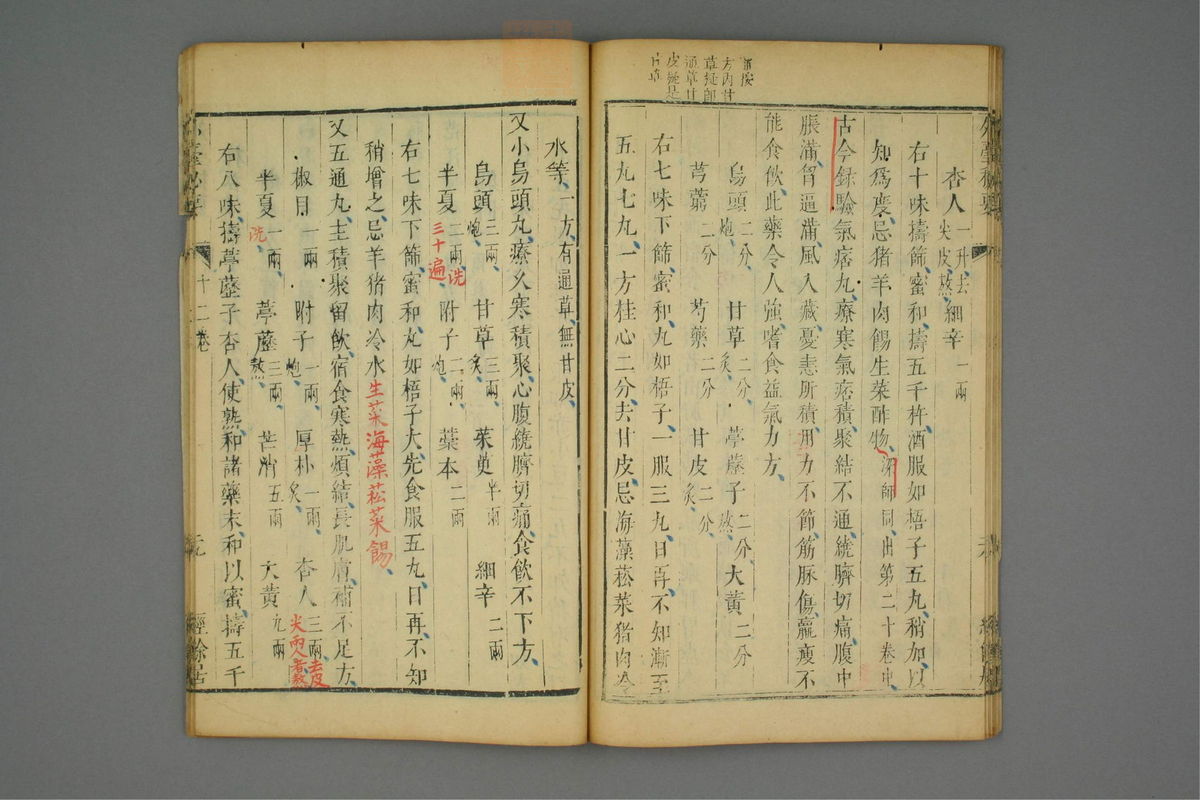 衍按
方內甘
草疑即
通草甘
皮疑是
甘草
杏人一升去尖皮熬、細辛一兩
右十味擣篩、蜜和、擣五千杵、酒服如梧子五九、稍加、以
知爲度、忌猪羊肉餳生菜酢物、深師同出第二十卷中、
古今録驗氣痞丸、療寒氣痞積、聚結不通、繞臍切痛、腹中
脹滿、胷逼滿、風入藏、憂恚所積、用力不節、筋脉傷、羸瘦、不
能食飲、此藥令人強嗜食益氣力方、
烏頭二分、炮、甘草二分、炙、葶藶子二分、熬、大黃二分
芎藭二分 芍藥二分 甘皮二分、炙、
右七味下篩、蜜和、丸如梧子、一服三九、日再、不知漸至
五九七九、一方桂心二分、去甘皮、忌海藻菘菜猪肉冷
水等、一方、有通草無甘皮、
又小烏頭丸、療久寒積聚心腹繞臍切痛、食飲不下方、
烏頭三兩、炮、甘草三兩、炙、茱萸半兩、細辛二兩
半夏二兩、洗三十遍 附子二兩、炮、藁本二兩
右七味下篩、蜜和丸如梧子大、先食服五九、日再、不知
稍增之、忌羊猪肉冷水生菜海藻菘菜餳、
又五通丸、主積聚留飲、宿食寒熱、煩結、長肌膚、補不足方、
椒目一兩、附子一兩、炮、厚朴一兩、炙、杏人三兩、去皮尖兩人者熬
半夏一兩、洗、葶藶三兩、熬、芒消五兩 大黃九兩
右八味、擣葶藶子杏人、使熟、和諸藥末、和以蜜、擣五千
十二卷